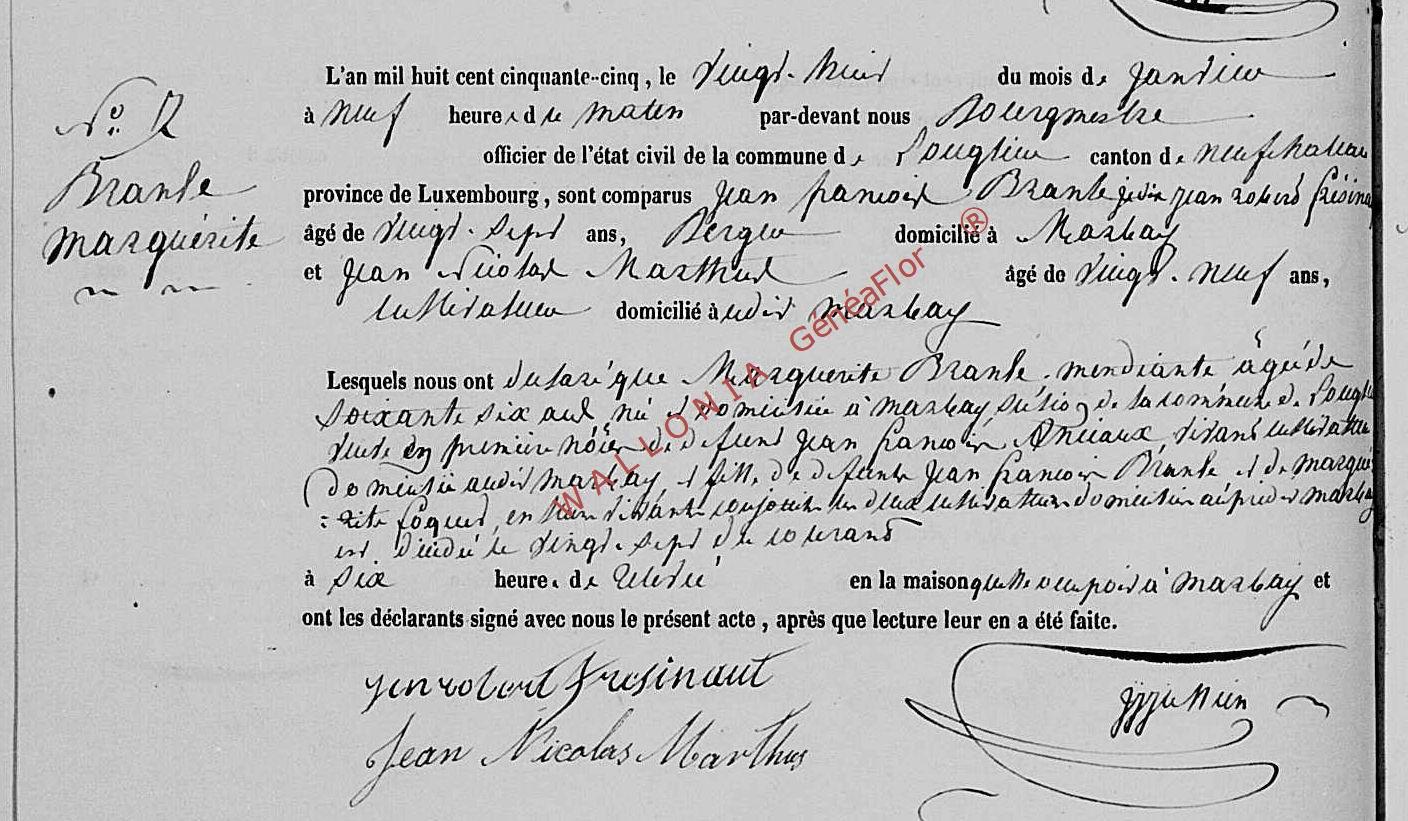 N° 2
Branle
Marguérite
L'an mil huit cent cinquante-cinq, le vingt-huit du mois de janvier
à neuf heures du matin par-devant nous Bourgmestre
officier de l'état civil de la commune de Longlier canton de neufchateau
province de Luxembourg, sont comparus Jean francois Branle jean robert
âgé de vingt-sept ans, Berger domicilié à Marbay
et Jean Nicolas Marthus âgé de vingt-neuf ans,
cultivateur domicilié à udit Marbay
Lesquels nous ont déclaré que Marguerite Branle mendiante âgée de
soixante six ans, né et domiciliée à marbay, section de la commune de Longlier
veuve en première nôces de défunt Jean francois vivant cultivateur
domicilié audit marbay et fille de défunts Jean francois Branle et de margué
: rite en leur vivant conjoints les deux cultivateurs domiciliés au marbay
est décédée le vingt-sept du courant
à six heures de relevé en la maison qu'elle occupoit à Marbay et
ont les déclarants signé avec nous le présent acte, après que lecture leur en a été faite.
jenrobert fresinaut
Jean Nicolas Marthus
WALLONIA GénéaFlor ®